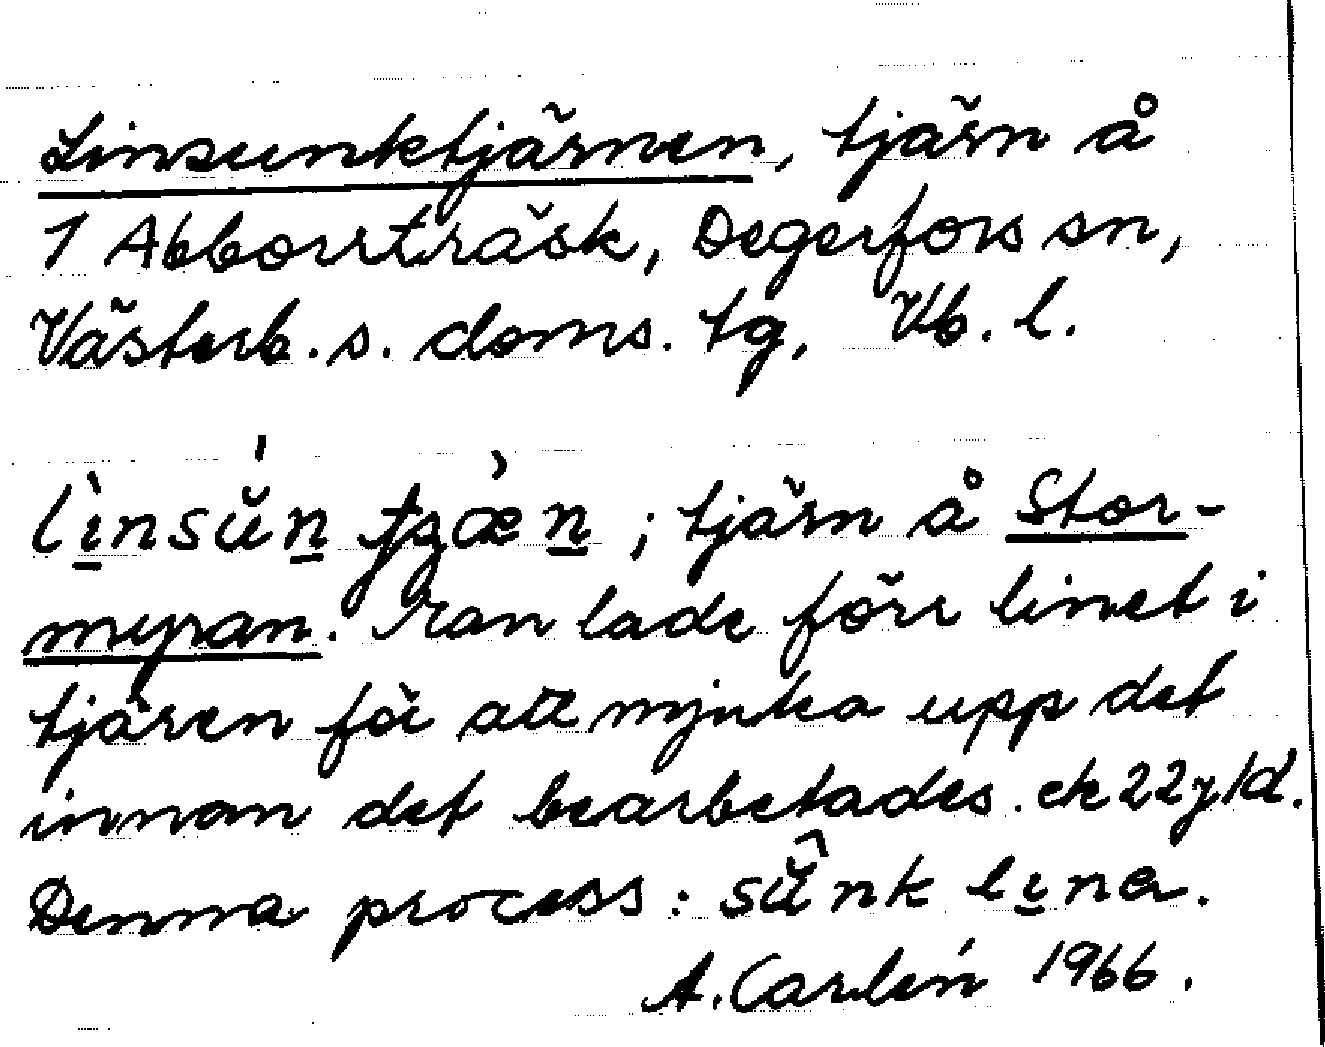 Linsunktjärnen, tjärn å
1 Abborrträsk, Degerfors sn,
Västerb. s. doms. tg, Vb. l.
tjärn å Stor-
myran. Man lade förr linet i
tjären för att mjuka upp det
innan det bearbetades. ek 22
Denna process: sŭnk lına.
A. Carlén 1966.